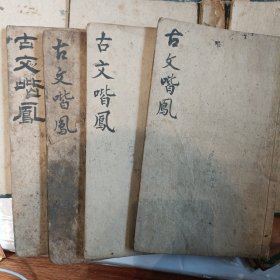 古文喈鳳
古文喈鳳
古文喈鳳
古文喈鳳